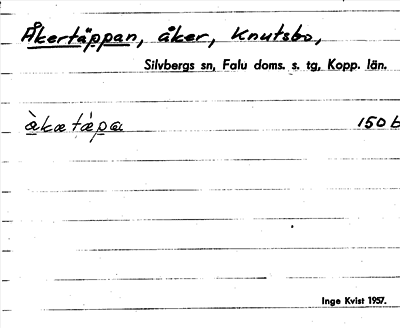 Åkertäppan, åker, Knutsbo,
Silvbergs sn, Falu doms. s. tg, Kopp. län.
àkætæ̀pa 150b
Inge Kvist 1957.